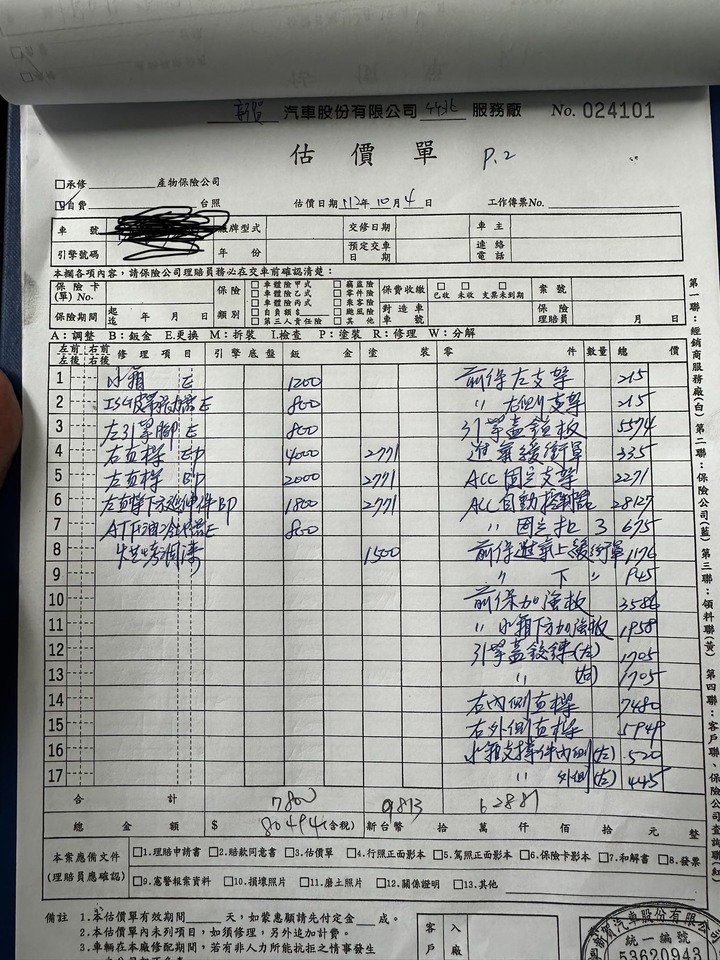 汽車股份有限公司 服務廠 No. 024101
估價單 P.2
□承修 產物保險公司
□自費 台照 估價日期 112年10月4日 工作傳票No.
車號 廠牌型式 交修日期 車主
引擎號碼 年份 預定交車日期 連絡電話
本欄各項內容，請保險公司理賠員務必在交車前確認清楚：
保險卡(單)No. 保險類別 □車體險甲式 □竊盜險 保費收繳 □已收 □未收 □支票未到期 案號
□車體險乙式 □零件險
□車體險丙式 □乘客險
保險期間 起迄 年 月 日 □自負額$ □颱風險 對造車車號 保險理賠員 月 日
□第三人責任險 □其他
A：調整 B：鈑金 E.更換 M：拆裝 I.檢查 P：塗裝 R：修理 W：分解
左前 右前 左後 右後 修理項目 引擎底盤 鈑金 塗裝 零件 數量 總價
1 水箱 E 1200 前保左支架 215
2 E 800 〃 右側支架 215
3 左引擎腳 E 800 引擎蓋鎖板 5574
4 右直樑 EP 4000 2771 進氣緩衝單 335
5 左直樑 BP 2000 2771 ACC固定支架 2271
6 左直樑下方延伸件BP 1800 2771 ACC自動控制器 28127
7 ATF油冷器E 800 〃 固定扣 3 675
8 烤漆調漆 1500 前保進氣上緩衝單 1176
9 〃 下 〃 945
10 前保加強板 3586
11 〃 水箱下方加強板 1958
12 引擎蓋鉸鏈(左) 1705
13 〃 (右) 1705
14 右內側直樑 7480
15 右外側直樑 5949
16 水箱支撐件內側(左) 520
17 〃 外側(左) 445
合計 9813 62881
總金額 $ 80494(含稅) 新台幣 拾 萬 仟 佰 拾 元 整
本案應備文件(理賠員應確認) □1.理賠申請書 □2.賠款同意書 □3.估價單 □4.行照正面影本 □5.駕照正面影本 □6.保險卡影本 □7.和解書 □8.發票
□9.憲警報案資料 □10.損壞照片 □11.磨土照片 □12.關係證明 □13.其他
備註 1.本估價單有效期間 天，如蒙惠顧請先付定金 成。
2.本估價單內未列項目，如須修理，另外追加計費。
3.車輛在本廠修配期間，若有非人力所能抗拒之情事發生
客戶
入廠
汽車股份有限公司
統一編號
53620943
第一聯：經銷商服務廠(白) 第二聯：保險公司(藍) 第三聯：領料聯(黃) 第四聯：客戶聯、保險公司查詢聯(紅)